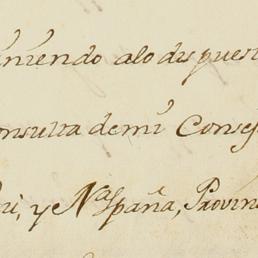 niendo alo dispuest
onsulta demi Consej
i, y Na España, Provin